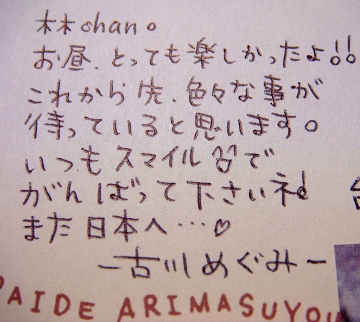 林chan。
お昼、とっても楽しかったよ!!
これから先、色々な事が
待っていると思います。
いつもスマイルで
がんばって下さいネ
また日本へ…♡
ー古川めぐみー
PAIDE ARIMASUYOU
台